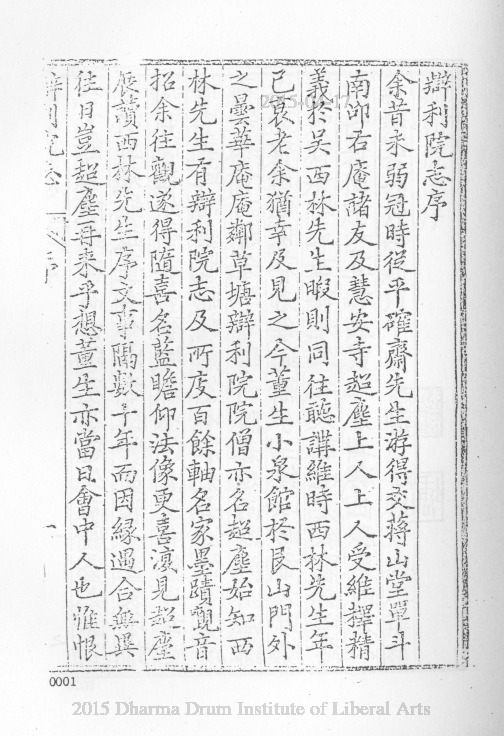 辯利院志序
余昔未弱冠時從平確齋先生游得交蔣山堂單斗
南邵右庵諸友及慧安寺超塵上人上人受維摩精
義於吳西林先生暇則同往聽講維時西林先生年
已衰老余猶幸及見之今董生小泉館於艮山門外
之曇華庵庵鄰草塘辯利院院僧亦名超塵始知西
林先生有辯利院志及所庋百餘軸名家墨蹟觀音
招余往觀遂得隨喜名藍瞻仰法像更喜復見超塵
展讀西林先生序文事隔數十年而因緣遇合無異
往日豈超塵再來乎想董生亦當日會中人也惟恨
辯利院志 序 一
0001
2015 Dharma Drum Institute of Liberal Arts